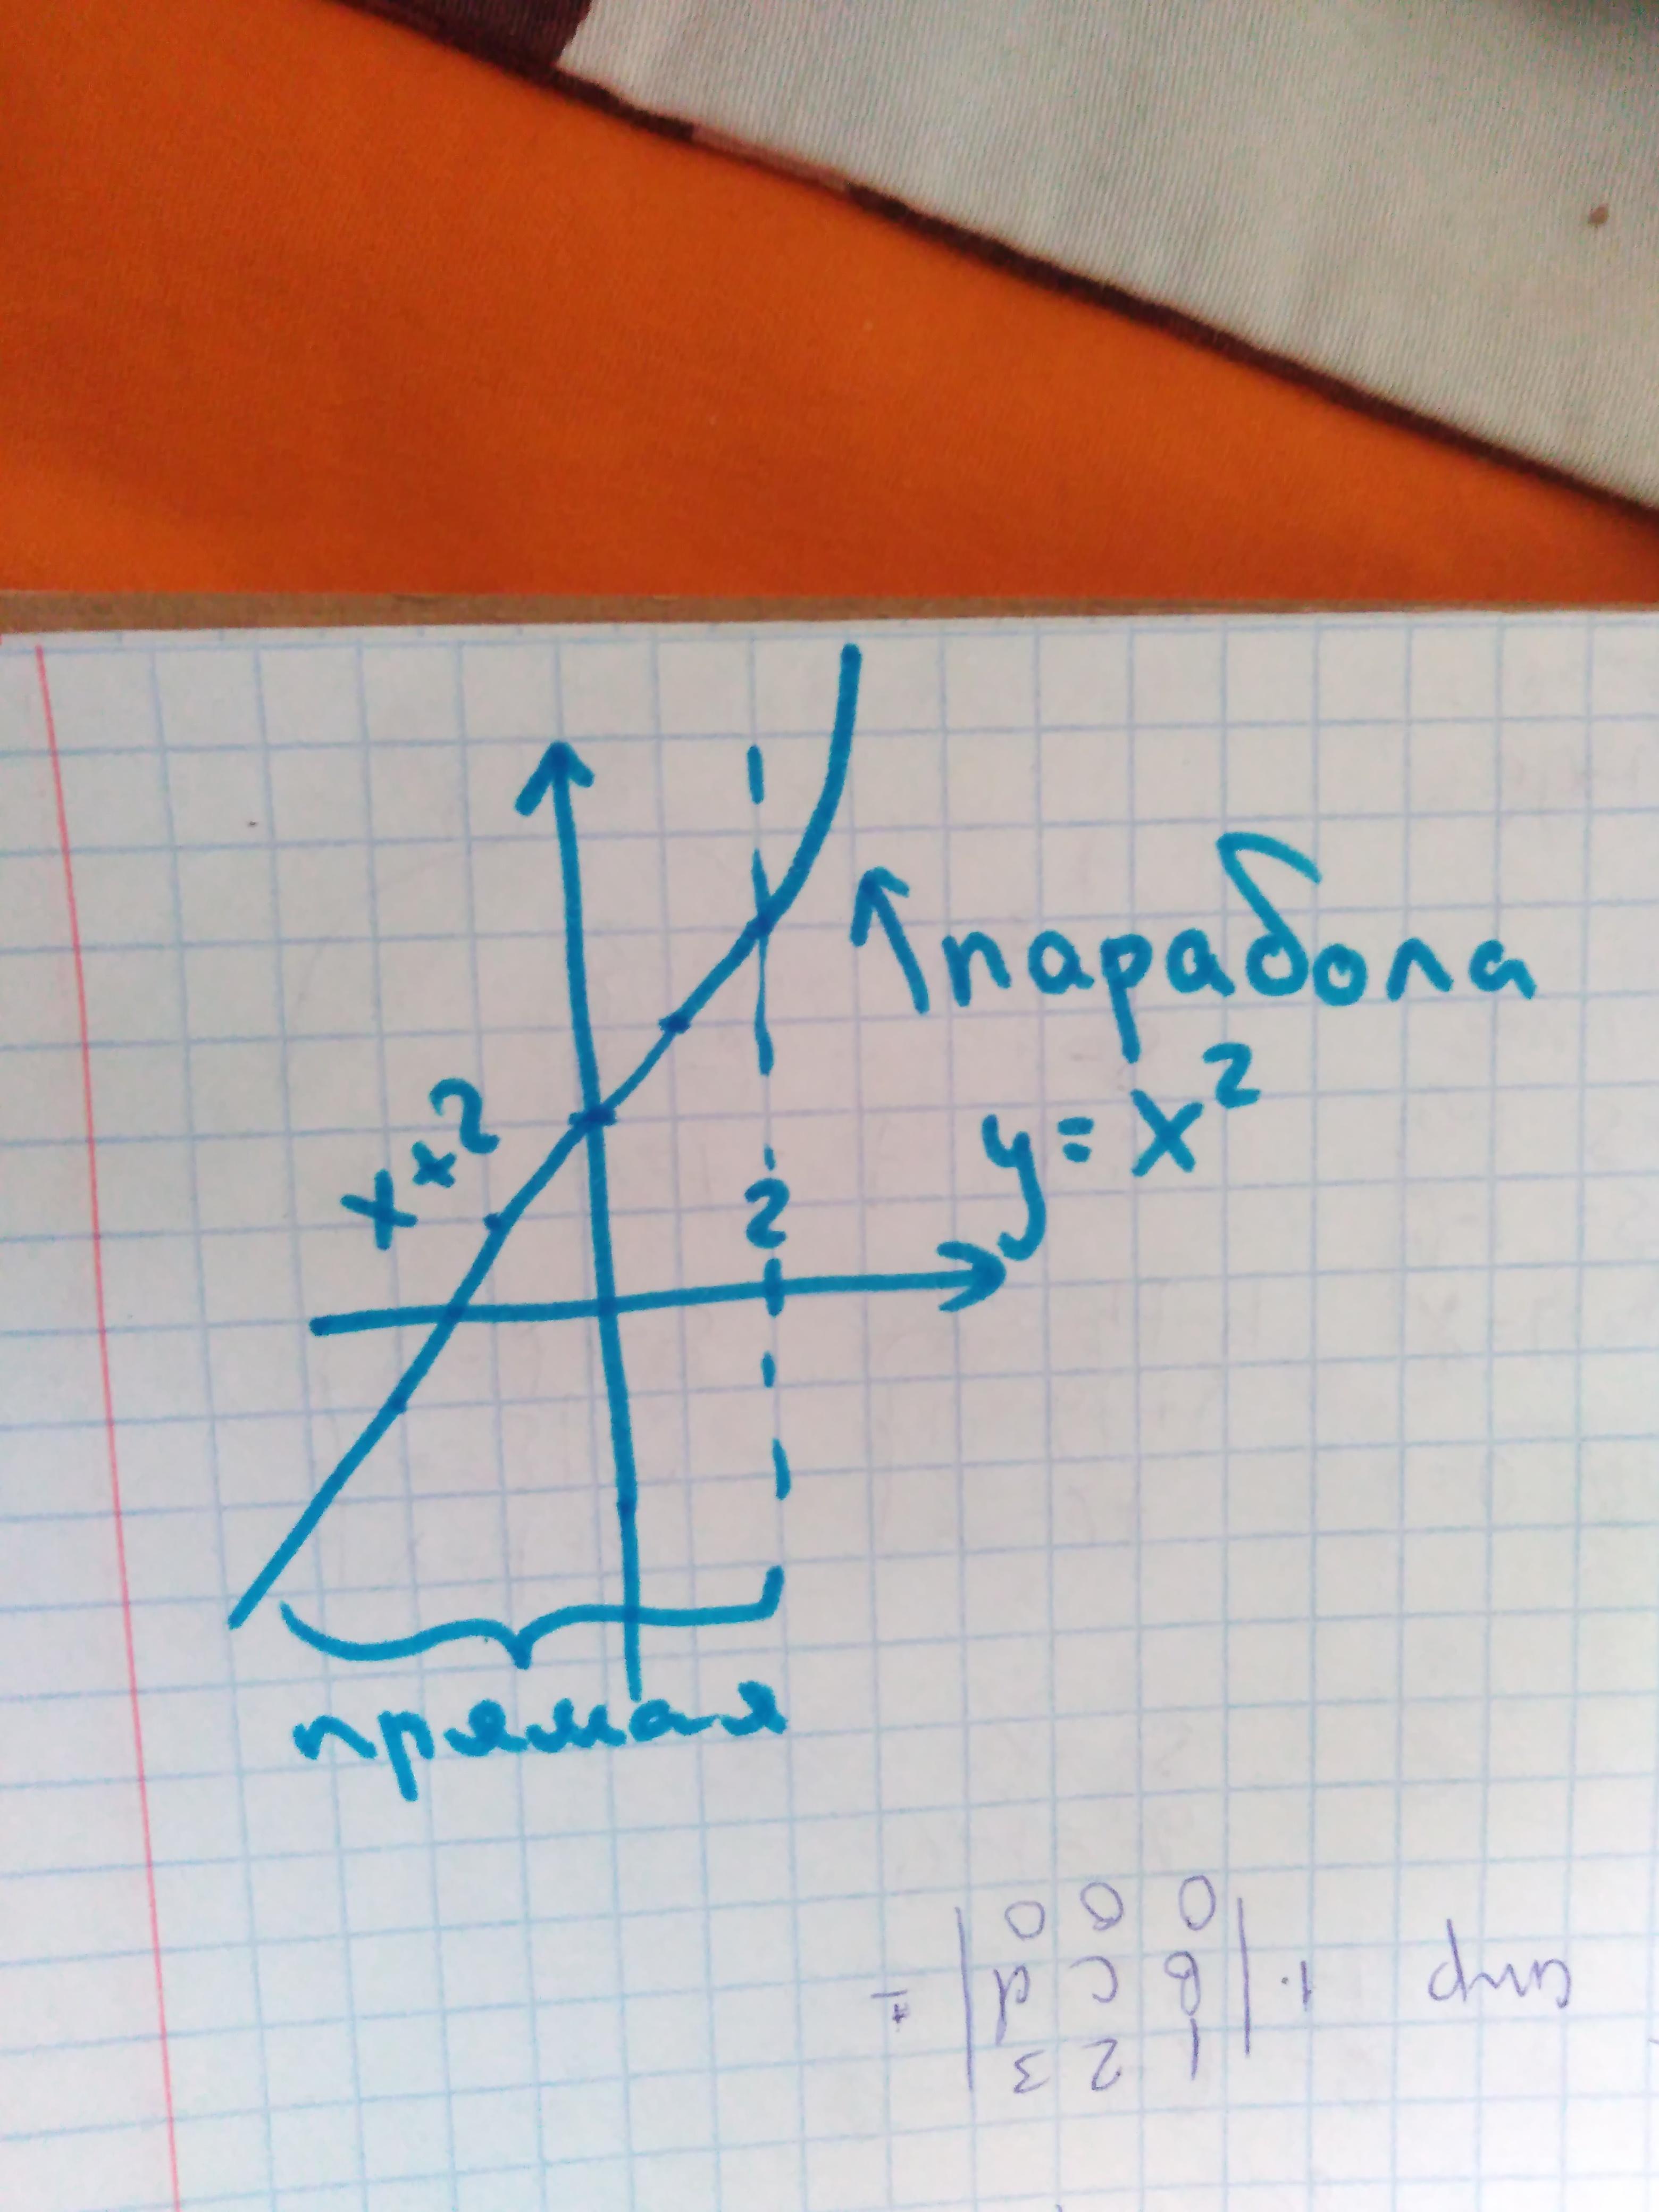 парабола
x+2
y = x²
2
прямая
1 2 3
1· | b c d |
0 0 0